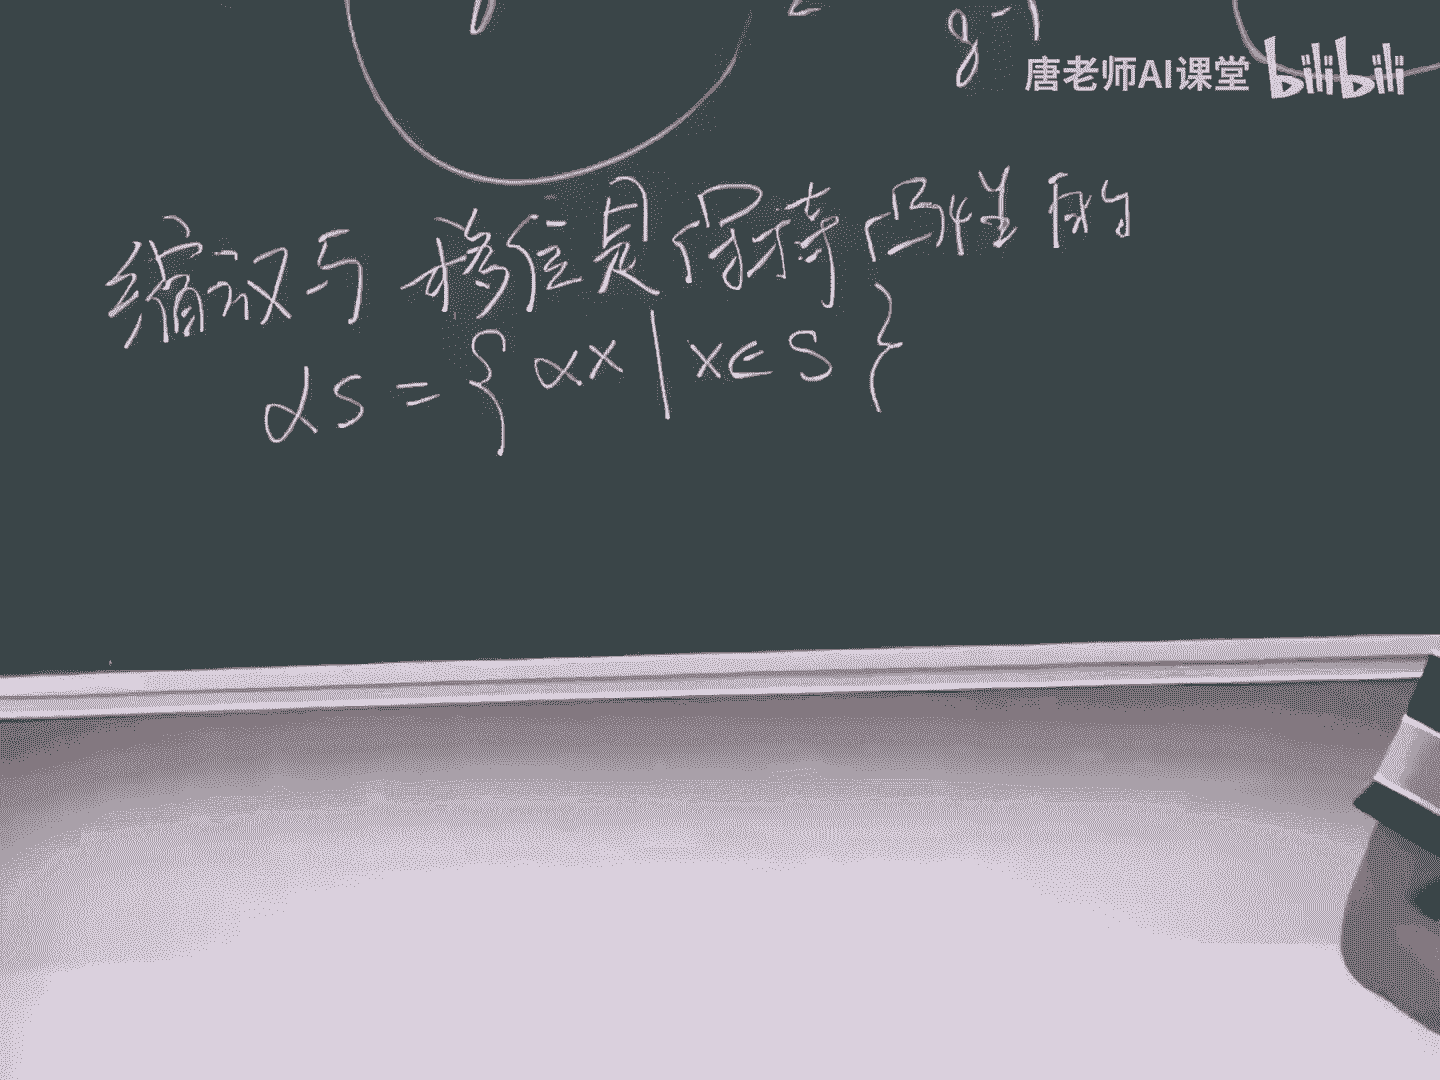 g⁻¹
唐老师AI课堂 bilibili
缩放与移位是保持凸性的
αS = { αx | x∈S }